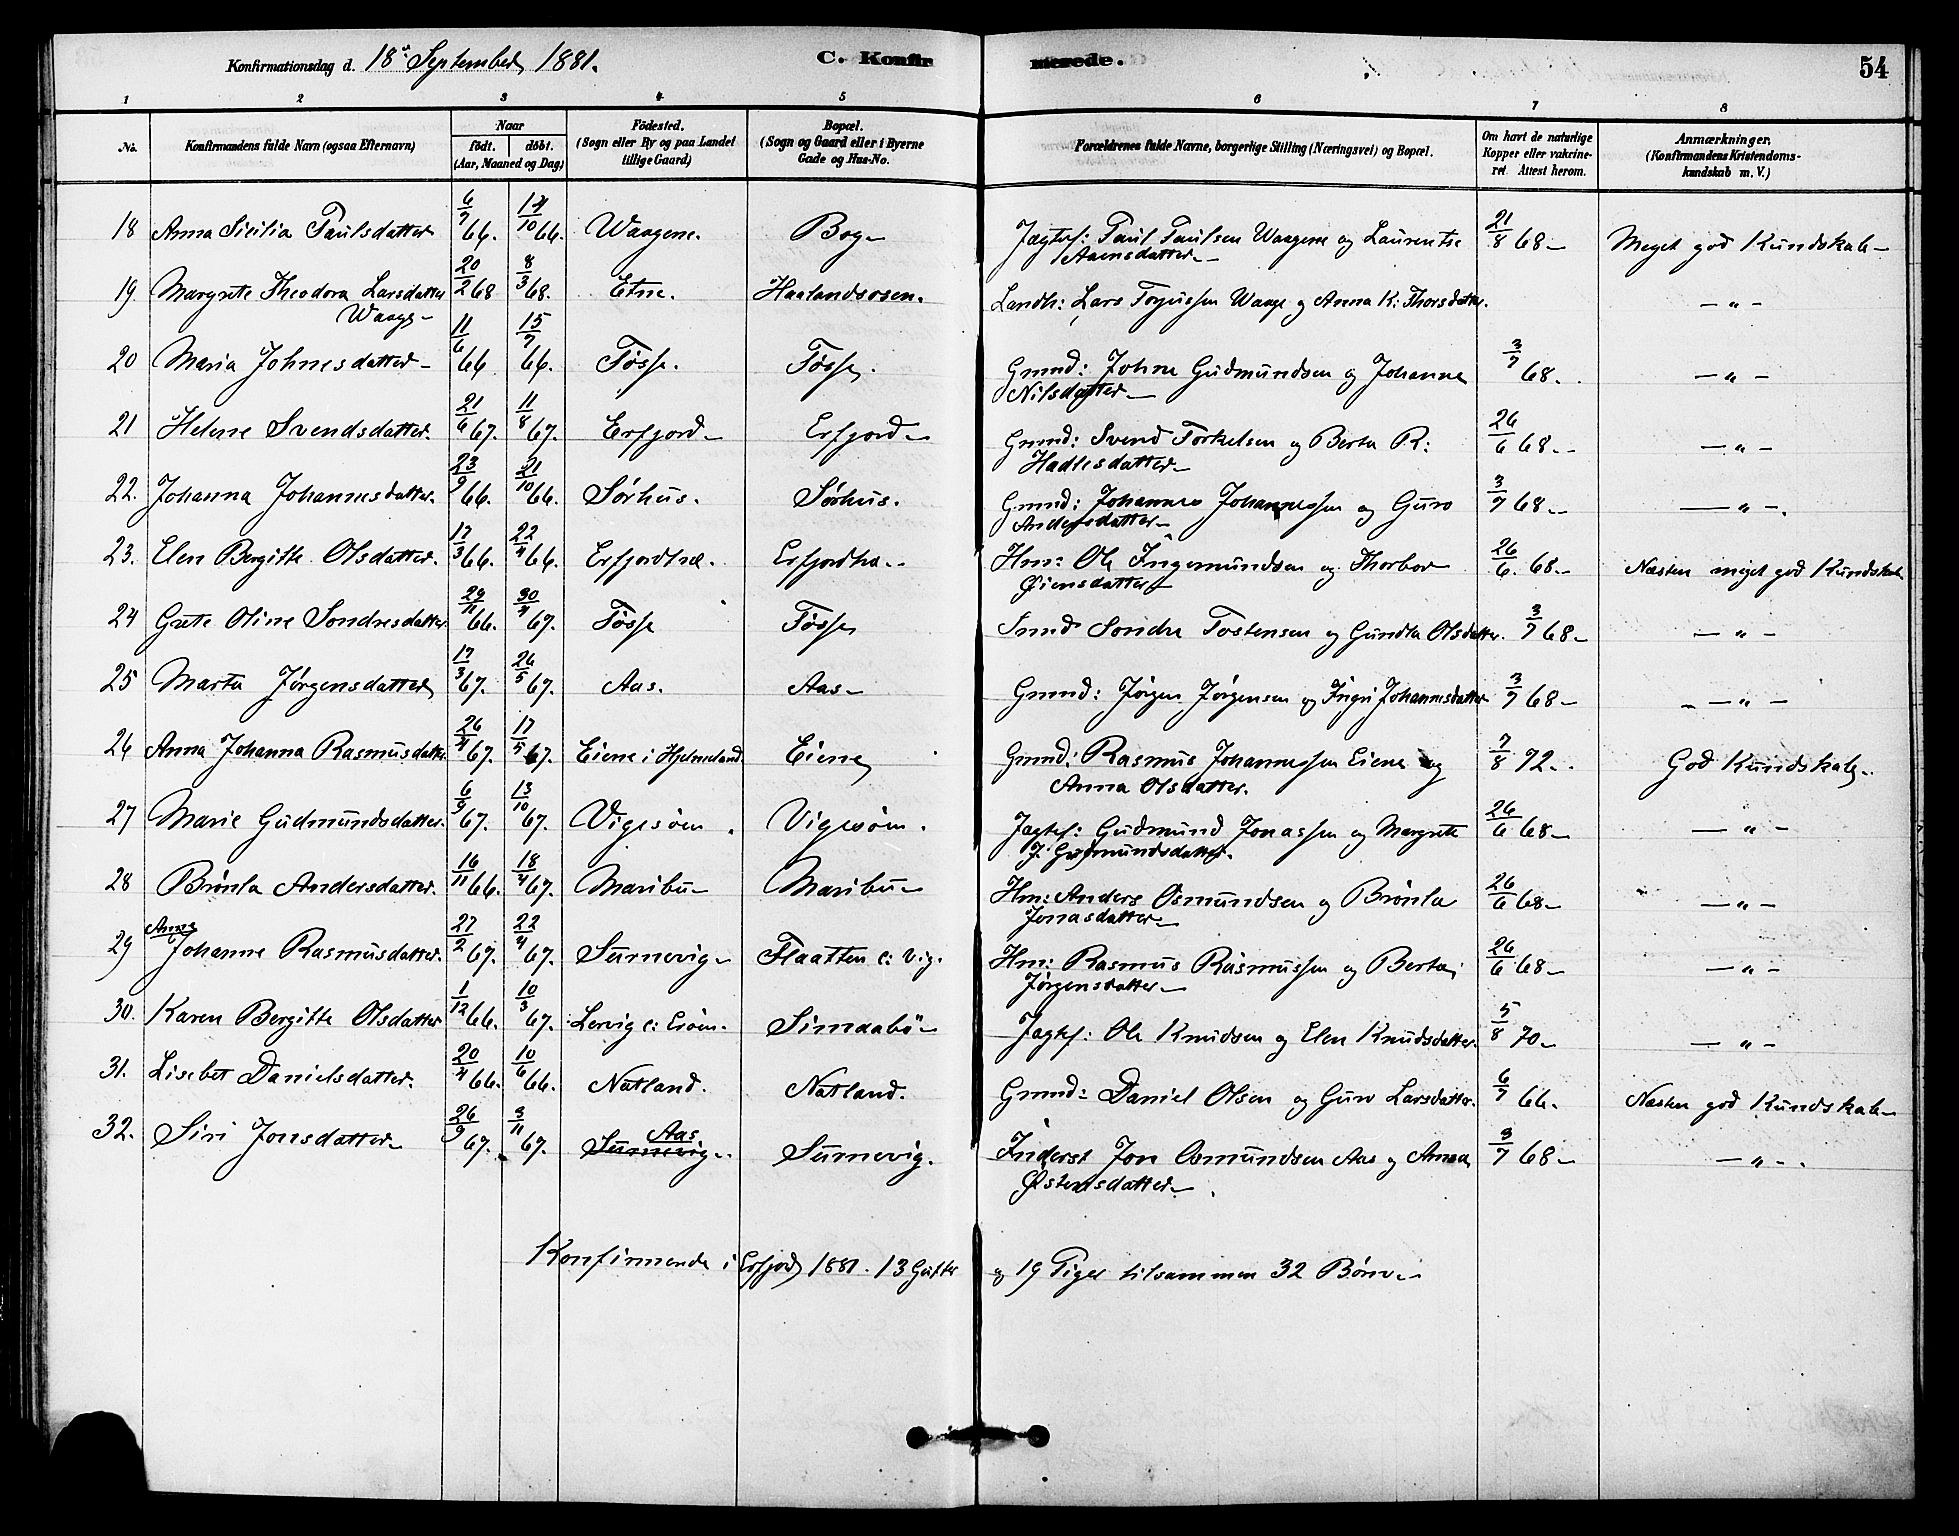 Konfirmationsdag d. 18de September 1881.
C. Konfirmerede.
54
1 2 3 4 5 6 7 8
No. Konfirmandens fulde Navn (ogsaa Efternavn)
Naar født. døbt. (Aar, Maaned og Dag)
Födested. (Sogn eller By og paa Landet tillige Gaard)
Bopæl. (Sogn og Gaard eller i Byerne Gade og Hus-No.
Forældrenes fulde Navne, borgerlige Stilling (Næringsvei) og Bopæl.
Om havt de naturlige Kopper eller vakcineret. Attest herom.
Anmærkninger. (Konfirmandens Kristendomskundskab m. V.)
18 Anna Sicilia Paulsdatter 6/7 66. 14/10 66. Waagene. Bog- Jægtef: Paul Paulsen Waagene og Laurentse Aaensdatter- 21/8 68- Meget god Kundskab-
19 Margrete Theodora Larsdatter Waage- 20/2 68 8/3 68. Etne. Haalandsosen. Landh: Lars Torgussen Waage og Anna K: Thorsdatter. -"-
20 Maria Johnesdatter- 11/6 66 15/7 66. Tøsse. Tøsse. Grmd: Johne Gudmundsen og Johanne Nilsdatter- 3/7 68. -"-
21 Helene Svendsdatter. 21/6 67. 11/8 67. Erfjord- Erfjord- Grmd: Svend Torkelsen og Berta R: Hadlesdatter- 26/6 68.- -"-
22. Johanna Johannesdatter. 23/9 66. 21/10 66. Sørhus. Sørhus. Grmd: Johannes Johannessen og Guro Andersdatter- 3/7 68.- -"-.
23. Elen Bergitte Olsdatter. 17/3 66. 22/4 66. Erfjordhæ. Erfjordhæ.. Hm: Ole Ingemundsen og Thorbor Øiensdatter 26/6 68.- Næsten meget god Kundskab
24 Grete Oline Sondresdatter. 29/11 66. 30/4 67. Tøsse Tøsse Smd Sondre Tostensen og Gundla Olsdatter. 3/7 68- -"-
25 Marta Jørgensdatter 17/3 67. 26/5 67. Aas. Aas- Grmd: Jørgen Jørgensen og Ingri Johannesdatter 3/7 68- -"-
26 Anna Johanna Rasmusdatter 26/4 67. 17/5 67. Eiene i Hjelmeland. Eiene Grmd: Rasmus Johannessen Eiene og Anna Olsdatter. 7/8 72.. God Kundskab-
27 Marie Gudmundsdatter. 6/9 67. 13/10 67. Vigesøen. Vigesøen. Jægtef: Gudmund Jonassen og Margrete J. Gudmundsdatter. 26/6 68- -"-
28 Brønla Andersdatter. 16/11 66. 18/4 67. Maribu- Maribu- Hm: Anders Osmundsen og Brønla Jonasdatter- 26/6 68- -"-
29 Anna Johanne Rasmusdatter. 27/2 67. 22/4 67. Sunevig- Flaatten c: Vig. Hm: Rasmus Rasmussen og Berta Jørgensdatter- 26/6 68- -"-
30. Karen Bergitte Olsdatter 1/12 66. 10/3 67. Lervig c: Erøen. Simaabø- Jægtef: Ole Knudsen og Elen Knudsdatter. 5/8 70- -"-
31. Lisebet Danielsdatter. 20/4 66. 10/6 66. Natland. Natland. Grmd: Daniel Olsen og Guro Larsdatter. 6/7 66. Næsten god Kundskab-
32. Siri Jonsdatter- 26/9 67. 3/11 67. Sunevig- Aas Sunevig. Inderst Jon Osmundsen Aas og Anna Østensdatter- 3/7 68- -"-.
Konfirmerede i Erfjord 1881. 13 Gutter og 19 Piger tilsammen 32 Børn.-